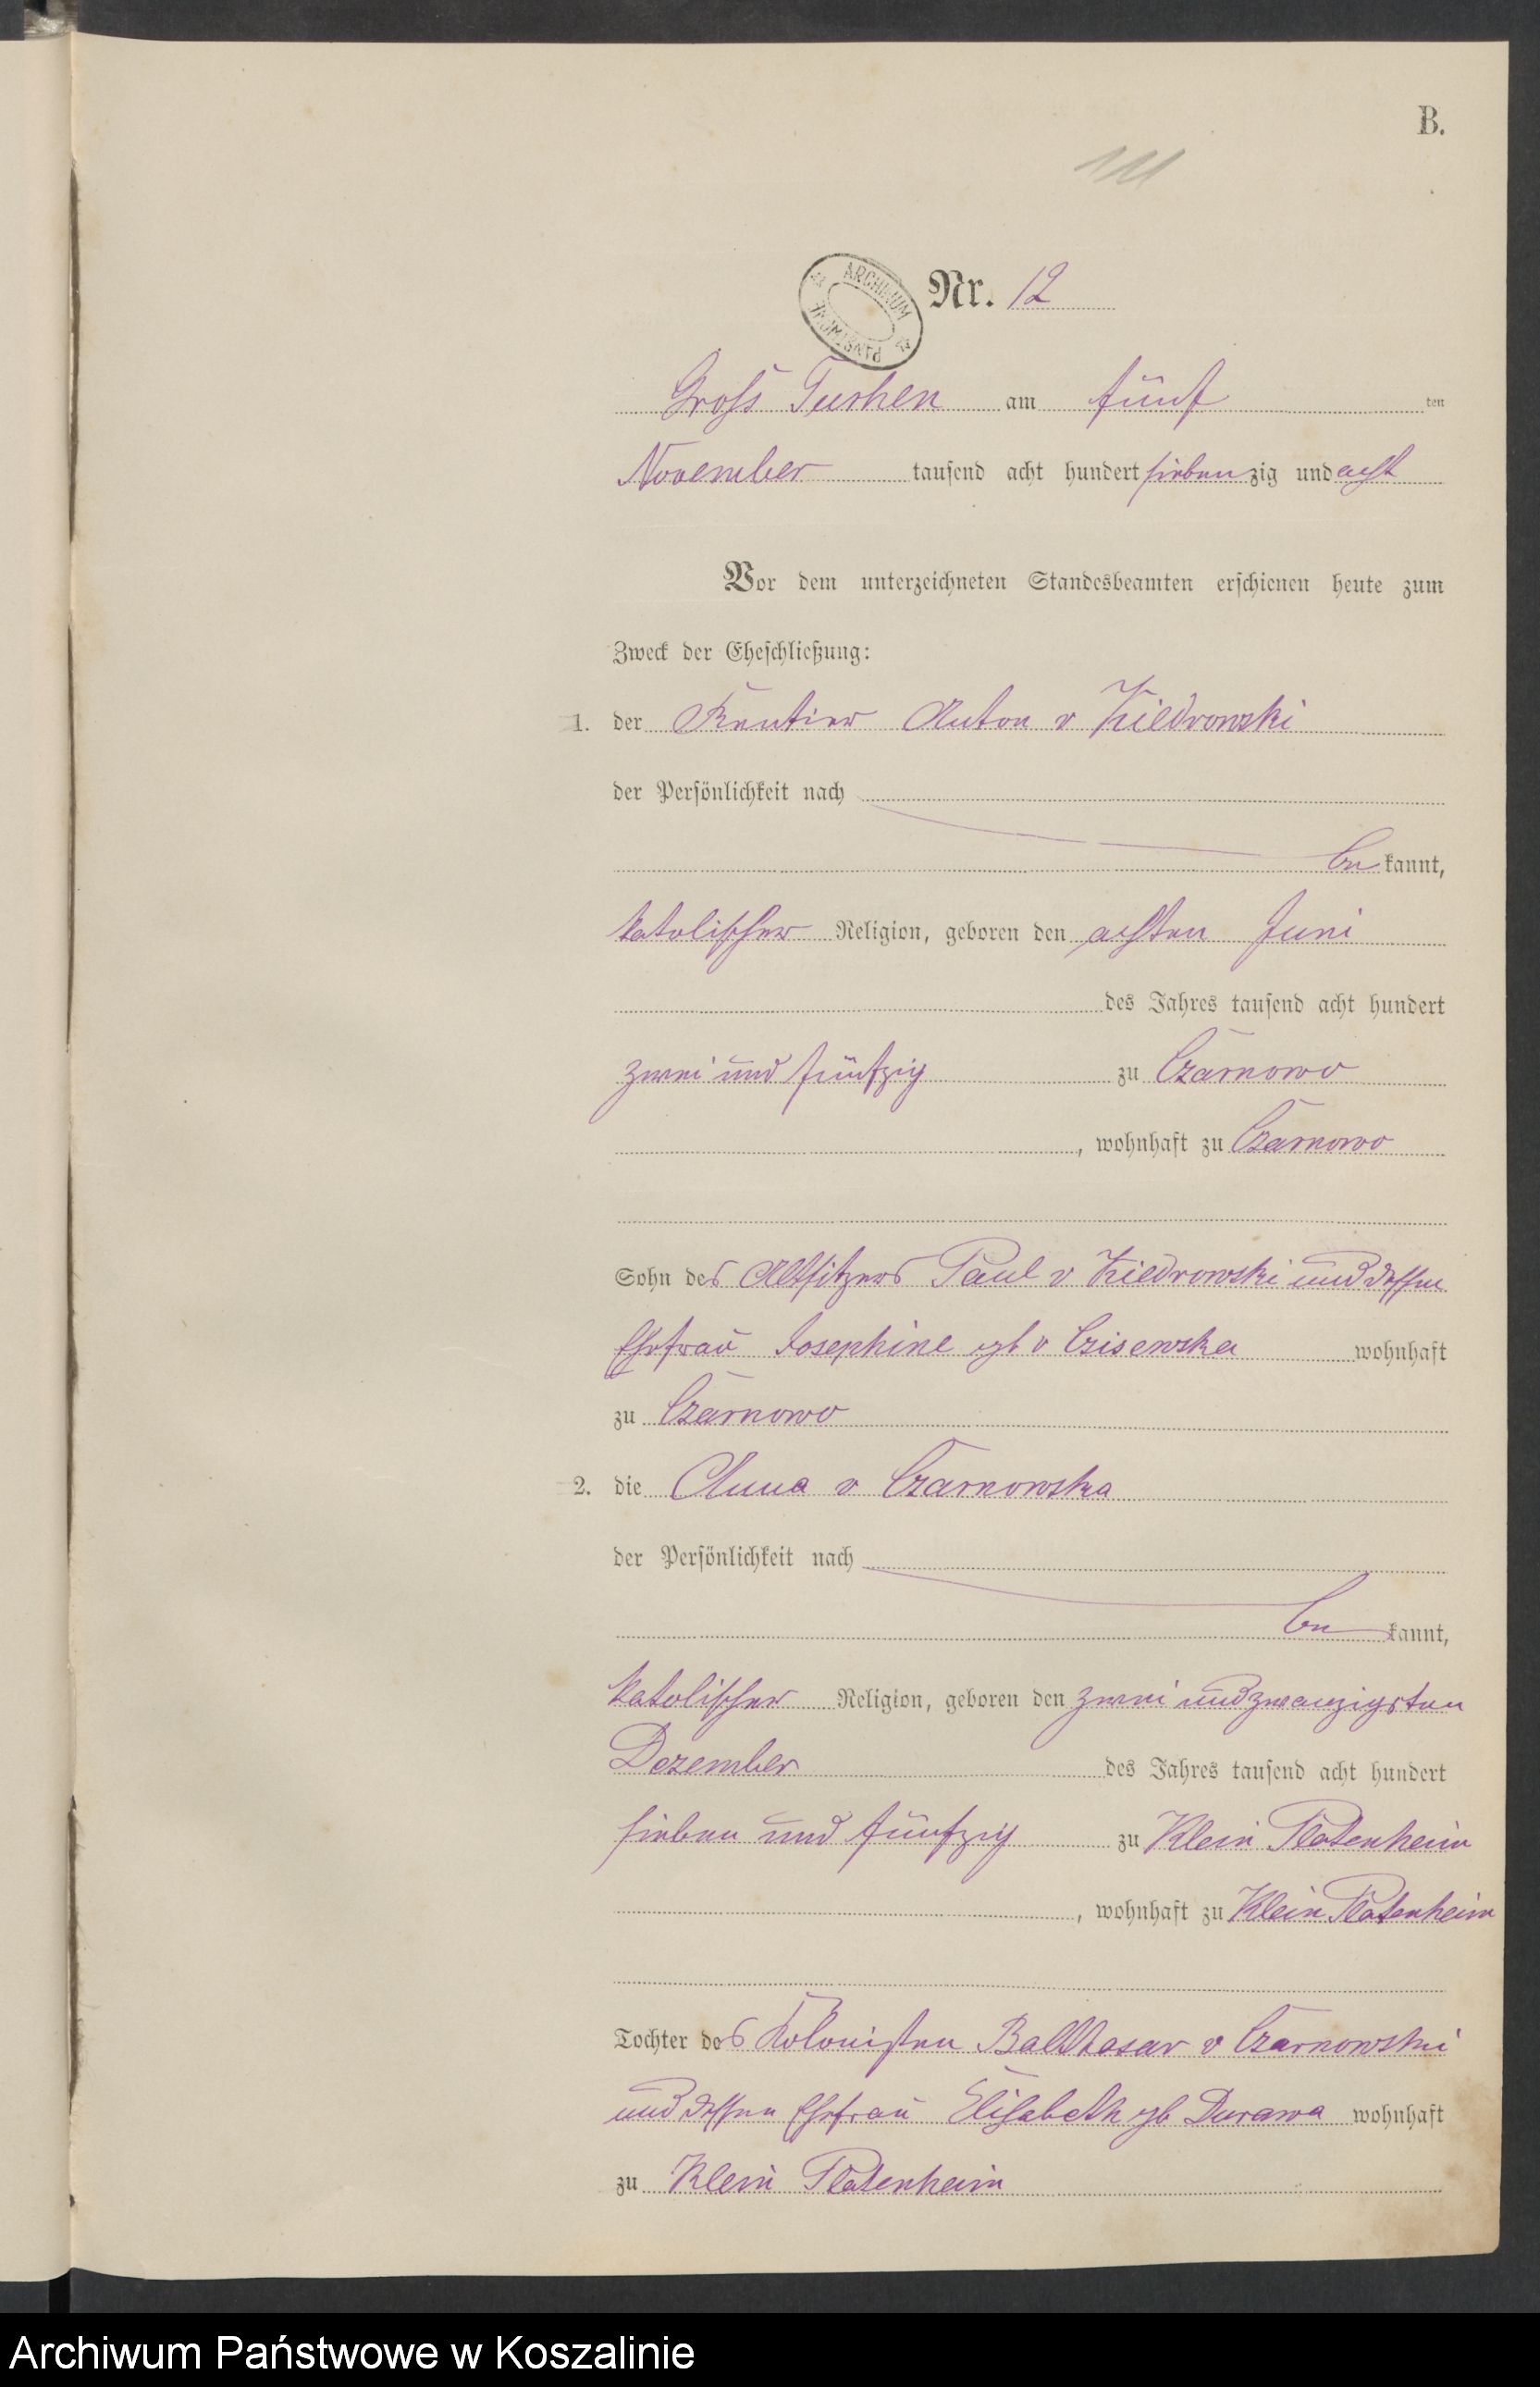 B.
111
ARCHIWUM PAŃSTWOWE
Nr. 12
Groß Tuchen am fünf ten
November tausend acht hundert siebenzig und acht
Vor dem unterzeichneten Standesbeamten erschienen heute zum
Zweck der Eheschließung:
1. der Rentier Anton v Kiedrowski
der Persönlichkeit nach
bekannt,
katolischer Religion, geboren den achten Juni
des Jahres tausend acht hundert
zwei und fünfzig zu Czarnowo
, wohnhaft zu Czarnowo
Sohn des Altsitzers Paul v Kiedrowski und dessen
Ehefrau Josephine gb v Czisewska wohnhaft
zu Czarnowo
2. die Anna v Czarnowska
der Persönlichkeit nach
bekannt,
katolischer Religion, geboren den zwei und zwanzigsten
Dezember des Jahres tausend acht hundert
sieben und fünfzig zu Klein Platenheim
, wohnhaft zu Klein Platenheim
Tochter des Kolonisten Balthasar v Czarnowski
und dessen Ehefrau Elisabeth gb Durawa wohnhaft
zu Klein Platenheim
Archiwum Państwowe w Koszalinie